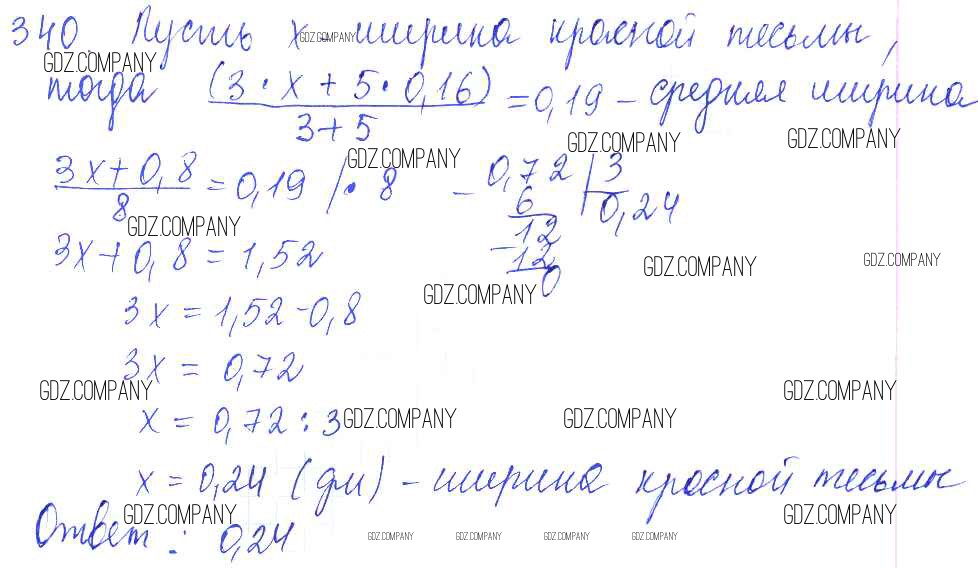 340. Пусть x - ширина красной тесьмы,
GDZ.COMPANY
GDZ.COMPANY
тогда (3 · x + 5 · 0,16) / 3 + 5 = 0,19 - средняя ширина
GDZ.COMPANY GDZ.COMPANY GDZ.COMPANY
3x + 0,8 / 8 = 0,19 / · 8
GDZ.COMPANY
- 0,72 | 3
6 0,24
12
- 12
0
3x + 0,8 = 1,52
GDZ.COMPANY GDZ.COMPANY
GDZ.COMPANY
3x = 1,52 - 0,8
3x = 0,72
GDZ.COMPANY GDZ.COMPANY
x = 0,72 : 3
GDZ.COMPANY GDZ.COMPANY
x = 0,24 (дм) - ширина красной тесьмы
GDZ.COMPANY GDZ.COMPANY
Ответ: 0,24
GDZ.COMPANY GDZ.COMPANY GDZ.COMPANY GDZ.COMPANY